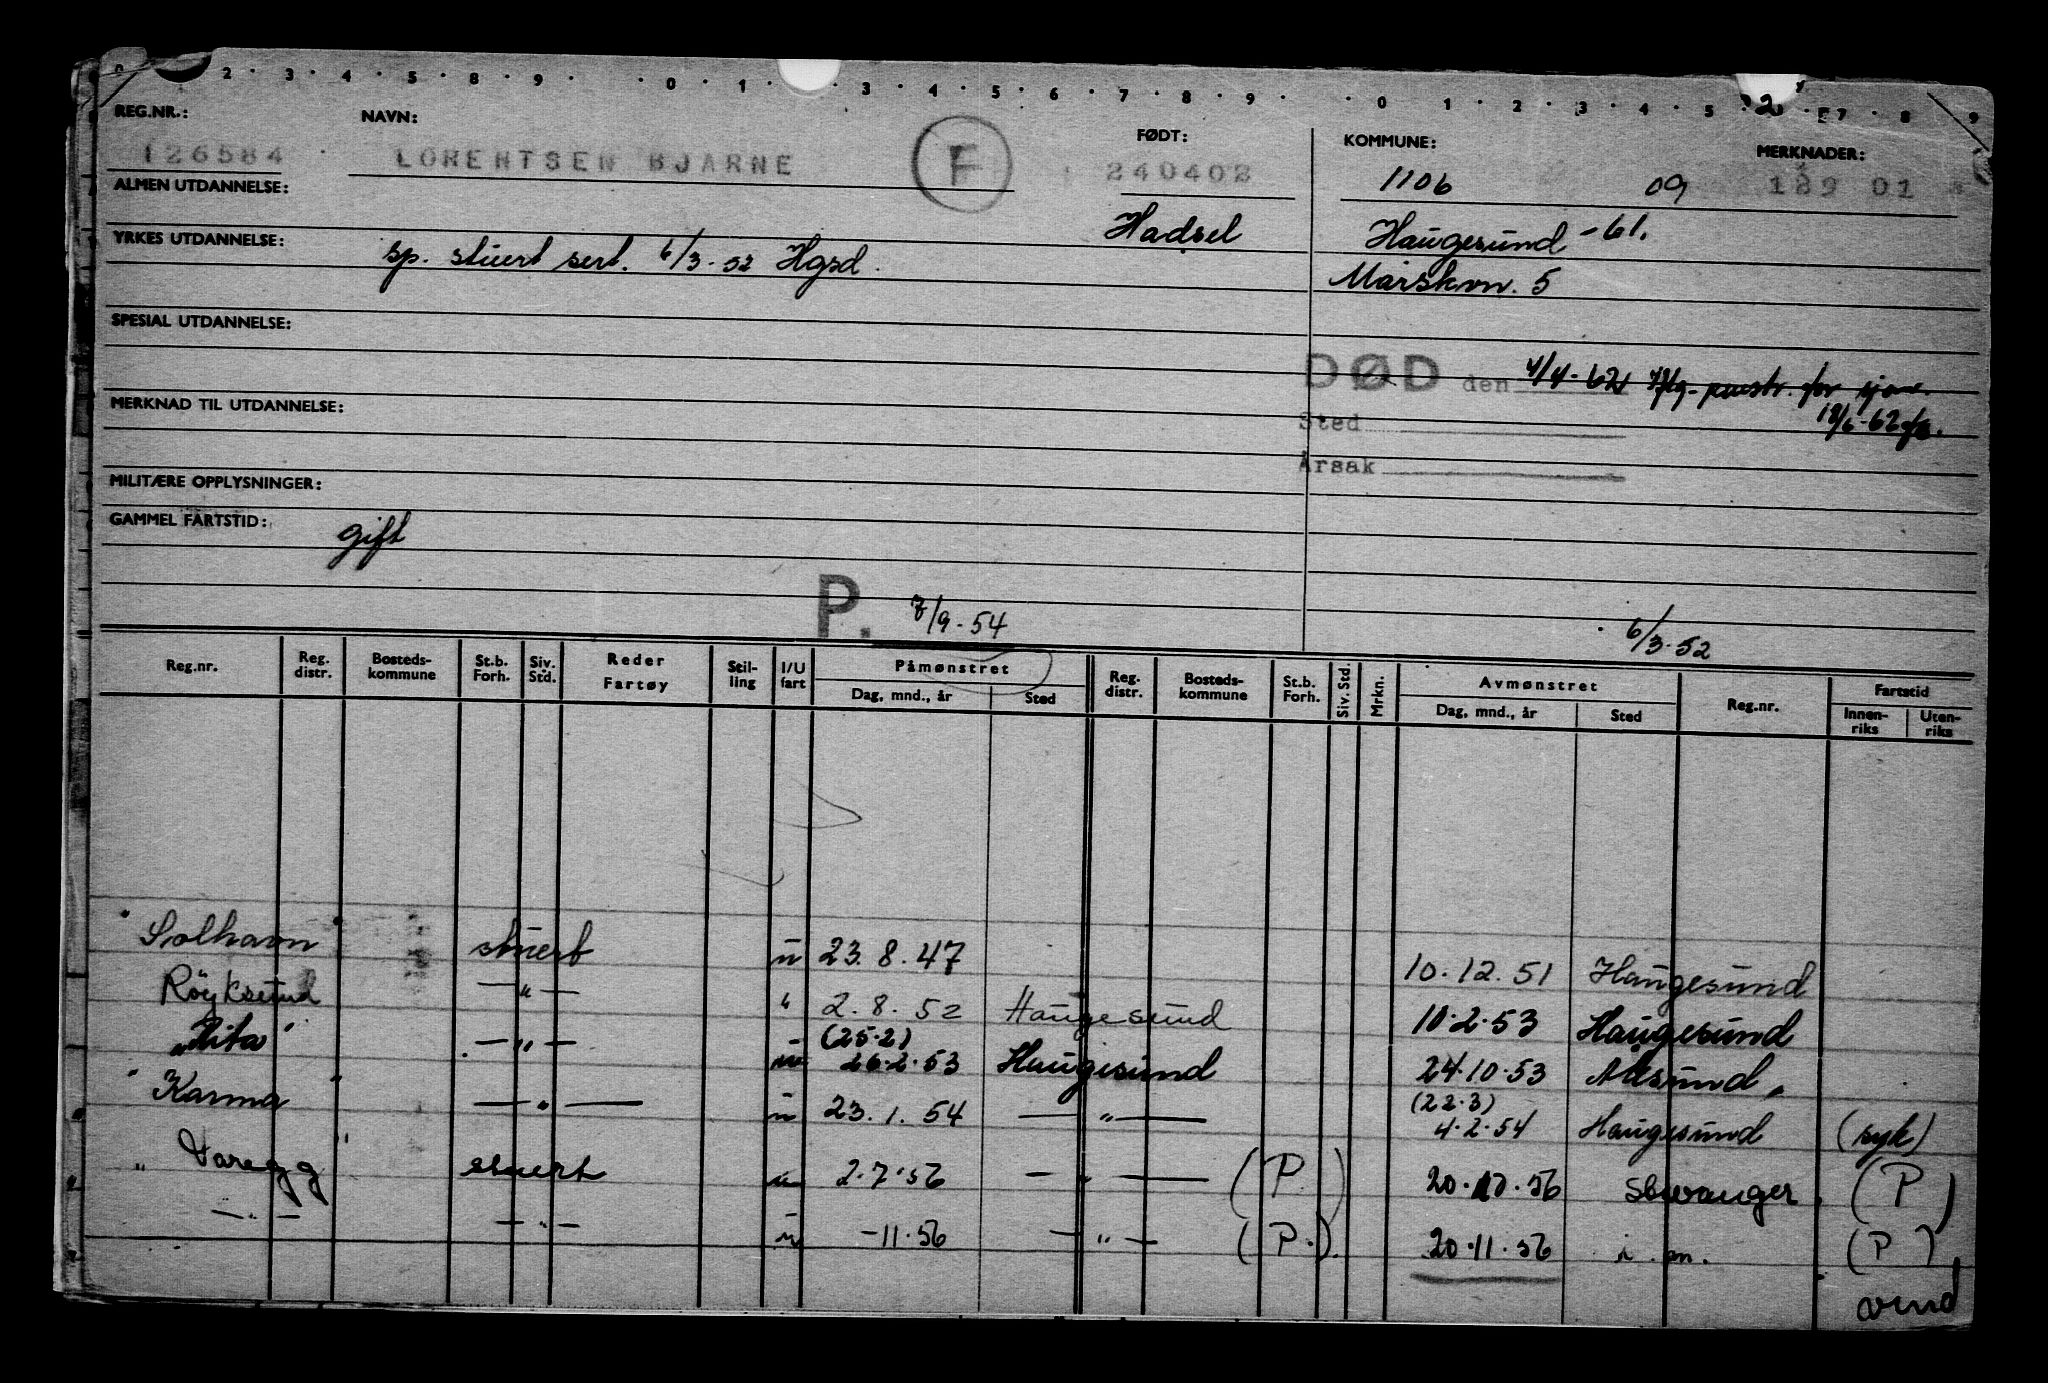 2 · 3 · 4 · 5 · 8 · 9 · · 0 · 1 · · 3 · 4 · 5 · 6 · 7 · 8 · 9 · · 0 · 1 · 2 · 3 · 4 · 5 · 2 · 7 · 8 · 9
REG.NR.: NAVN: FØDT: KOMMUNE: MERKNADER:
126584 LORENTSEN BJARNE F 240402 1106 09 129 01
ALMEN UTDANNELSE: Hadsel Haugesund -61.
YRKES UTDANNELSE: sp. stuert sert. 6/3-52 Hgsd. Mårskvn. 5
SPESIAL UTDANNELSE:
DØD den 4/4-62 iflg. for sjøm.
MERKNAD TIL UTDANNELSE: Sted 18/6-62
Årsak
MILITÆRE OPPLYSNINGER:
GAMMEL FARTSTID: gift
P. 7/9-54 6/3-52
Reg.nr. Reg. distr. Bosteds-kommune St.b. Forh. Siv. Std. Reder Fartøy Stil-ling I/U fart Påmønstret Dag, mnd., år Sted Reg. distr. Bosteds-kommune St.b. Forh. Siv. Std. Mrkn. Avmønstret Dag, mnd., år Sted Reg.nr. Fartstid Innen-riks Uten-riks
"Solhavn" stuert u 23.8.47 10.12.51 Haugesund
Röyksund — " — " 2.8.52 Haugesund 10.2.53 Haugesund
(25.2)
"Rita" — " — u 26.2.53 Haugesund 24.10.53 Ålesund
(22.3)
"Karma" — " — u 23.1.54 — " — 4.2.54 Haugesund (syk)
"Varegg" stuert u 2.7.56 — " — (P) 20.10.56 Stavanger (P)
— " — — " — u -11.56 — " — (P.) 20.11.56 i.m. (P)
vend